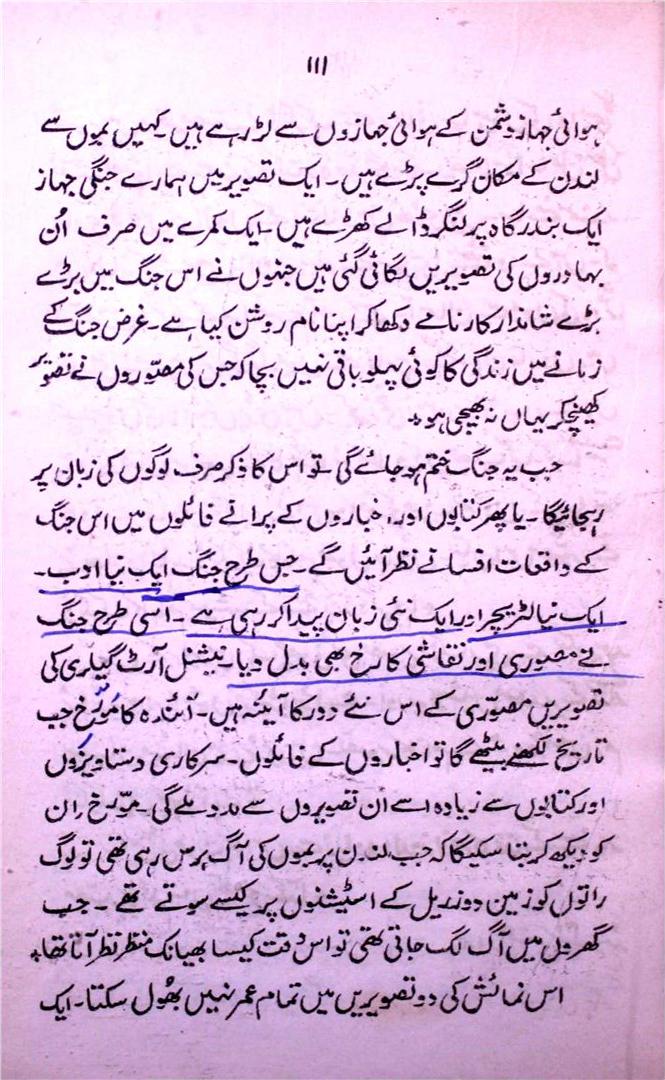 ۱۱۱
ہوائی جہاز دشمن کے ہوائی جہازوں سے لڑ رہے ہیں۔ کہیں بموں سے
لندن کے مکان گرے پڑے ہیں۔ ایک تصویر میں ہمارے جنگی جہاز
ایک بندرگاہ پر لنگر ڈالے کھڑے ہیں۔ ایک کمرے میں صرف اُن
بہادروں کی تصویریں لگائی گئی ہیں جنہوں نے اس جنگ میں بڑے
بڑے شاندار کارنامے دکھا کر اپنا نام روشن کیا ہے۔ غرض جنگ کے
زمانے میں زندگی کا کوئی پہلو باقی نہیں بچا کہ جس کی مصّوروں نے تصویر
کھینچ کر یہاں نہ بھیجی ہو*
جب یہ جنگ ختم ہو جائے گی تو اس کا ذکر صرف لوگوں کی زبان پر
رہجائیگا۔ یا پھر کتابوں اور اخباروں کے پرانے فائلوں میں اس جنگ
کے واقعات افسانے نظر آئیں گے۔ جس طرح جنگ ایک نیا ادب۔
ایک نیا لٹریچر اور ایک نئی زبان پیدا کر رہی ہے۔ اسی طرح جنگ
نے مصوری اور نقاشی کا رخ بھی بدل دیا۔ نیشنل آرٹ گیلری کی
تصویریں مصوّری کے اس نئے دور کا آئینہ ہیں۔ آئندہ کا مُورّخ جب
تاریخ لکھنے بیٹھے گا تو اخباروں کے فائلوں۔ سرکاری دستاویزوں
اور کتابوں سے زیادہ اسے ان تصویروں سے مدد ملے گی۔ مورّخ ان
کو دیکھ کر بتا سکیگا کہ جب لندن پر بموں کی آگ برس رہی تھی تو لوگ
راتوں کو زمین دوز ریل کے اسٹیشنوں پر کیسے سوتے تھے۔ جب
گھروں میں آگ لگ جاتی تھی تو اس وقت کیسا بھیانک منظر نظر آتا تھا*
اس نمائش کی دو تصویریں میں تمام عمر نہیں بھُول سکتا۔ ایک